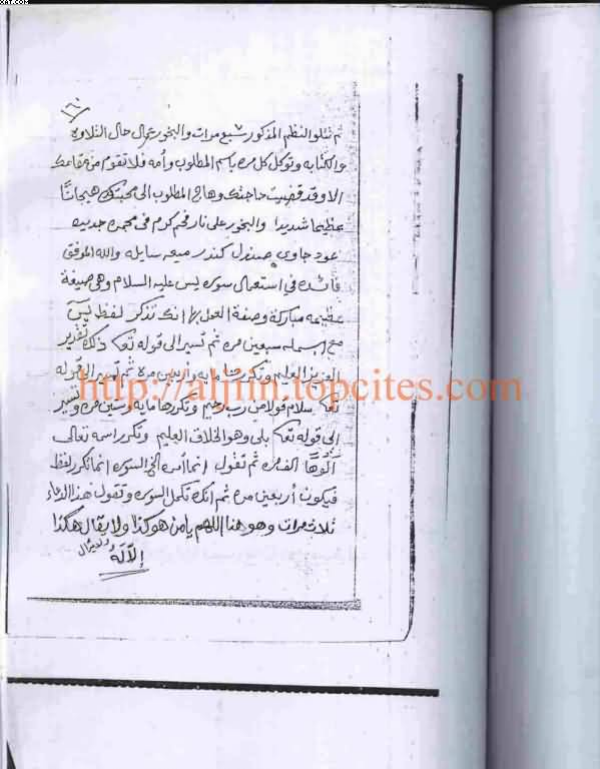 XAT.COM
٦٠
ثم تتلو النظم المذكور سبع مرات والبخور عمال حال التلاوه
والكتابه وتوكل كل مره باسم المطلوب وأمه فلا تقوم من مقامك
الا وقد قضيت حاجتك وهاج المطلوب الى محبتك هيجانا
عظيما شديدا والبخور على نار فحم كرم فى مجمره حديد
عود جاوى صندل كندر ميعه سايله والله الموفق
فائده فى استعمال سورة يس عليه السلام وهى صيغة
عظيمه مباركة وصفة العمل بها انك تذكر لفظ يس
مع البسمله سبعين مره ثم تسير الى قوله تعا ذلك تقدير
العزيز العليم وتكررها اربعين مره ثم تسير الى قوله
تعا سلام قولا من رب رحيم وتكررها مايه وستين مره وتسير
الى قوله تعا بلى وهو الخلاق العليم وتكرر اسمه تعالى
ألف مره ثم تقول انما أمره الخ السوره انما تكرر لفظ
فيكون أربعين مره ثم انك تكمل السوره وتقول هذا الدعاء
ثلاث مرات وهو هذا اللهم يا من هو كذا ولا يقال هكذا
إلا له
http://aljiin.topcites.com